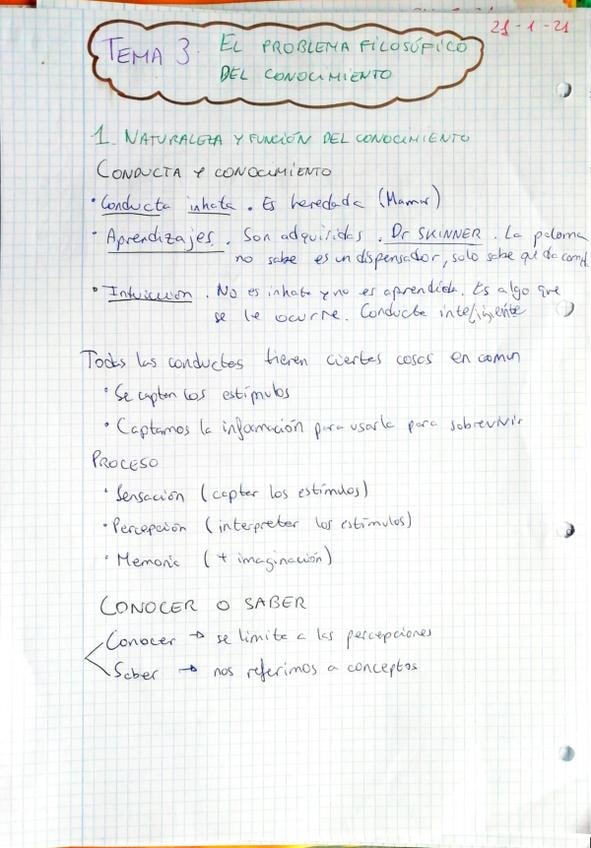 21-1-21
TEMA 3. EL PROBLEMA FILOSÓFICO
DEL CONOCIMIENTO
1. NATURALEZA Y FUNCIÓN DEL CONOCIMIENTO
CONDUCTA Y CONOCIMIENTO
· Conducta inhata. Es heredada (Mamar)
· Aprendizajes. Son adquiridas. Dr SKINNER. La paloma
no sabe es un dispensador, solo sabe que da comid
· Intuición. No es inhata y no es aprendida. Es algo que
se le ocurre. Conducta inteligente
Todas las conductas tienen ciertas cosas en comun
· Se captan los estímulos
· Captamos la información para usarla para sobrevivir
PROCESO
· Sensación (captar los estímulos)
· Percepción (interpretar los estímulos)
· Memoria (+ imaginación)
CONOCER O SABER
Conocer → se limita a las percepciones
Saber → nos referimos a conceptos